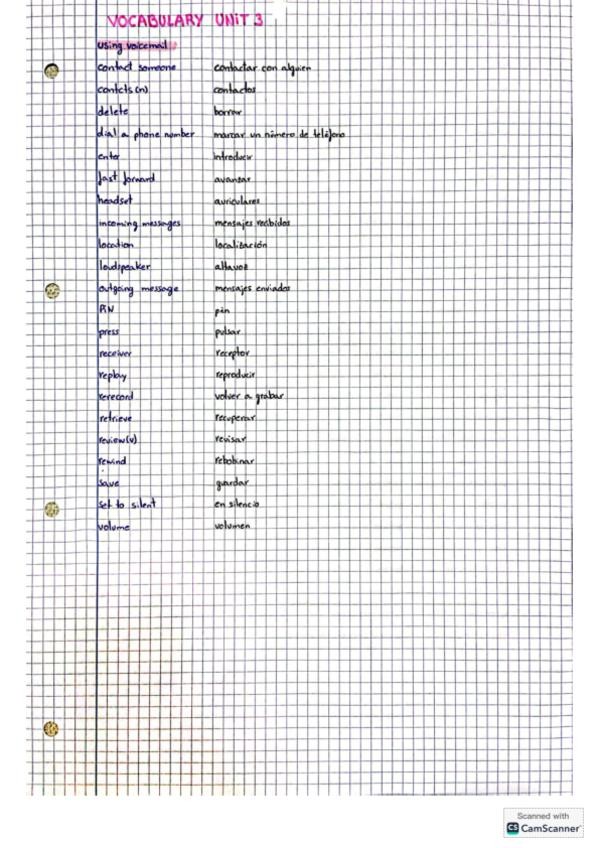 VOCABULARY UNIT 3
using voicemail
contact someone contactar con alguien
contcts (n) contactos
delete borrar
dial a phone number marcar un número de teléfono
enter introducir
fast forward avanzar
headset auriculares
incoming messages mensajes recibidos
location localización
loudspeaker altavoz
outgoing message mensajes enviados
PIN pin
press pulsar
receiver receptor
replay reproducir
rerecord volver a grabar
retrieve recuperar
review (v) revisar
rewind rebobinar
save guardar
set to silent en silencio
volume volumen
Scanned with
CS CamScanner